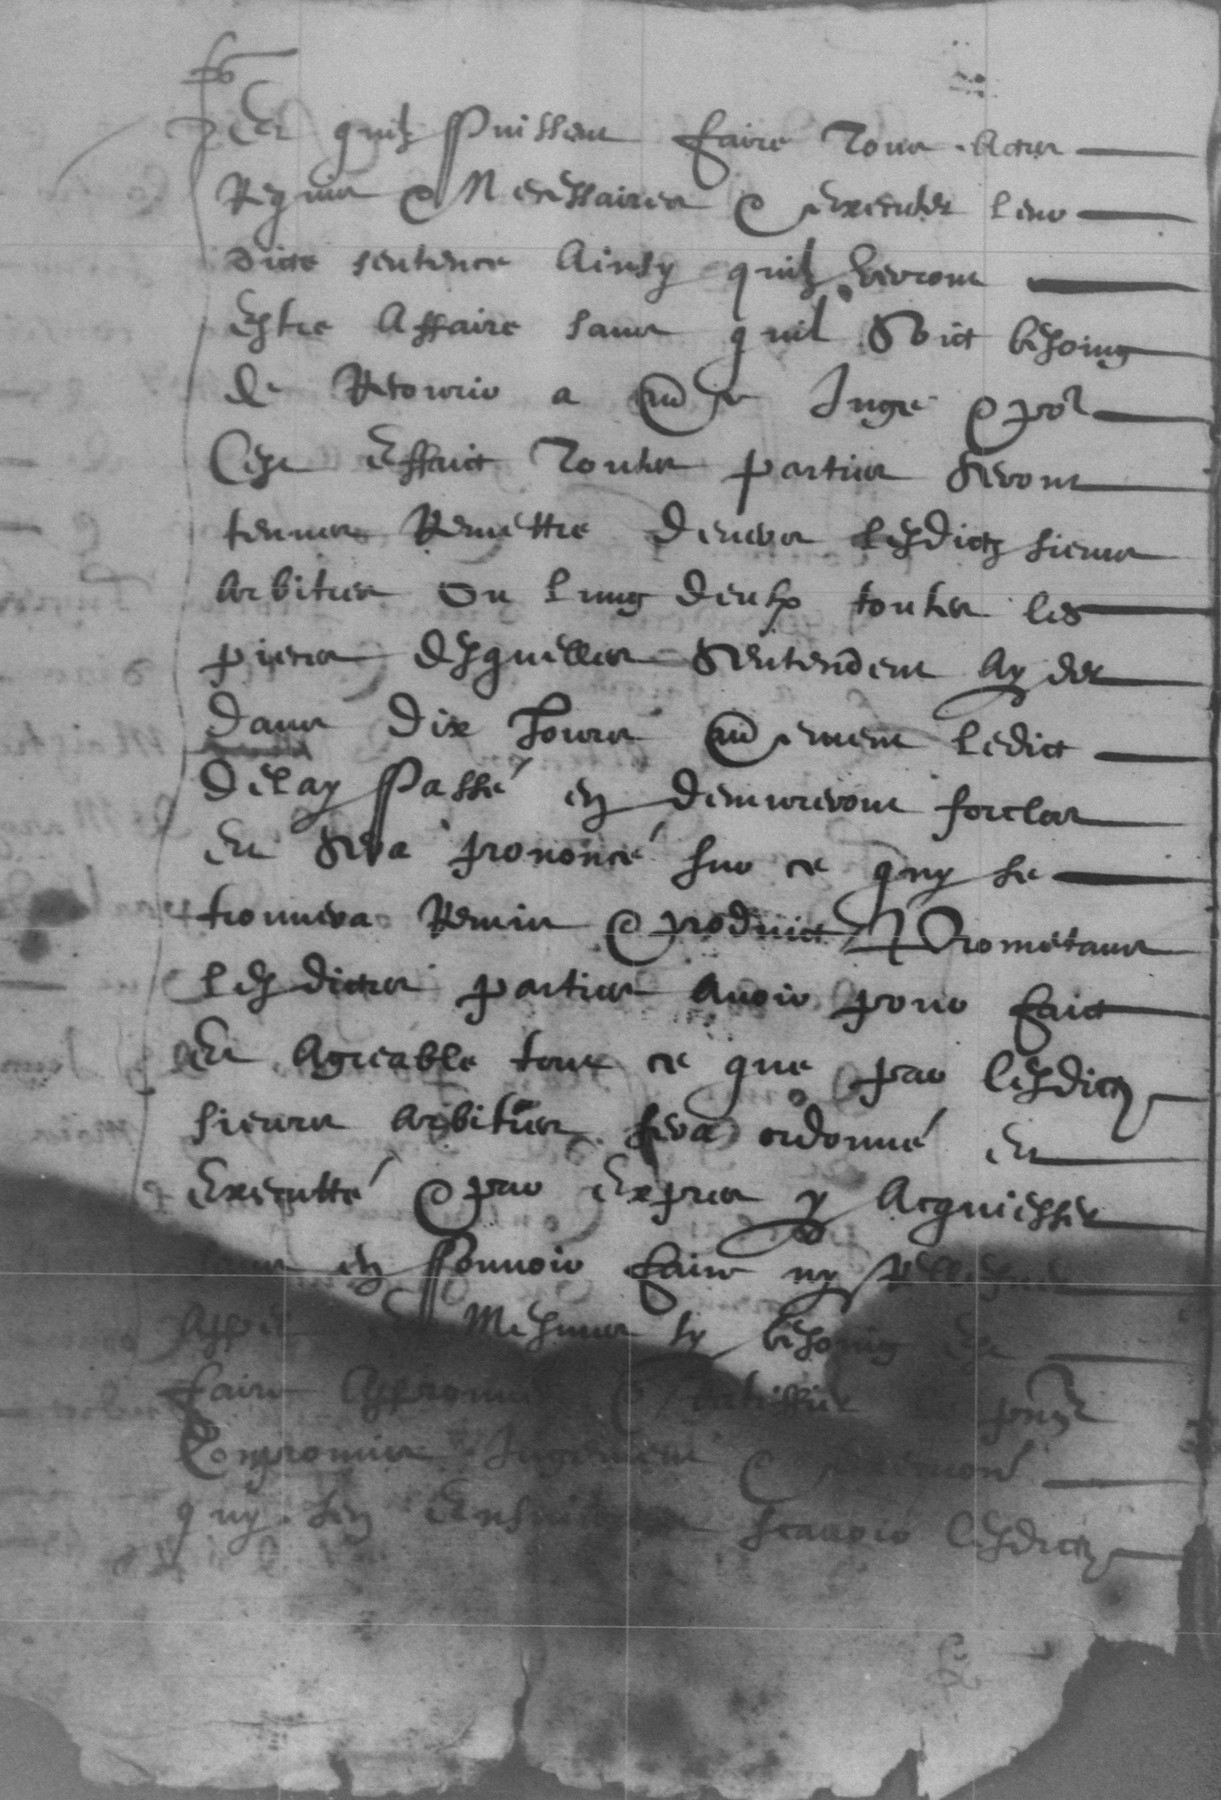 Et quilz puissent faire tous actes
Requis & Necessaires & executer leur
dicte sentence Ainsy quilz verront
Estre Affaire sans quil Soict besoing
de Recourir a Juge & pour
Cest Effaict Toutes parties seront
tenues Remettre devers lesdictz sieurs
Arbitres ou lung deulx toutes les
pieces desquelles sentendent ayder
Dans Dix Jours ledict
Delay passé en demureront forclos
Et Sera prononcé sur ce quy se
trouvera Remis & produict Prometans
lesdictes parties avoir pour faict
Et Agreable tout ce que par lesdictz
sieurs arbitres sera ordonné Et
Executté & par Expres y Acquiesser
en pouvoir faire ny
Mesmes sy besoing
faire &
Compromis Jugement &
quy sen scavoir lesdictz